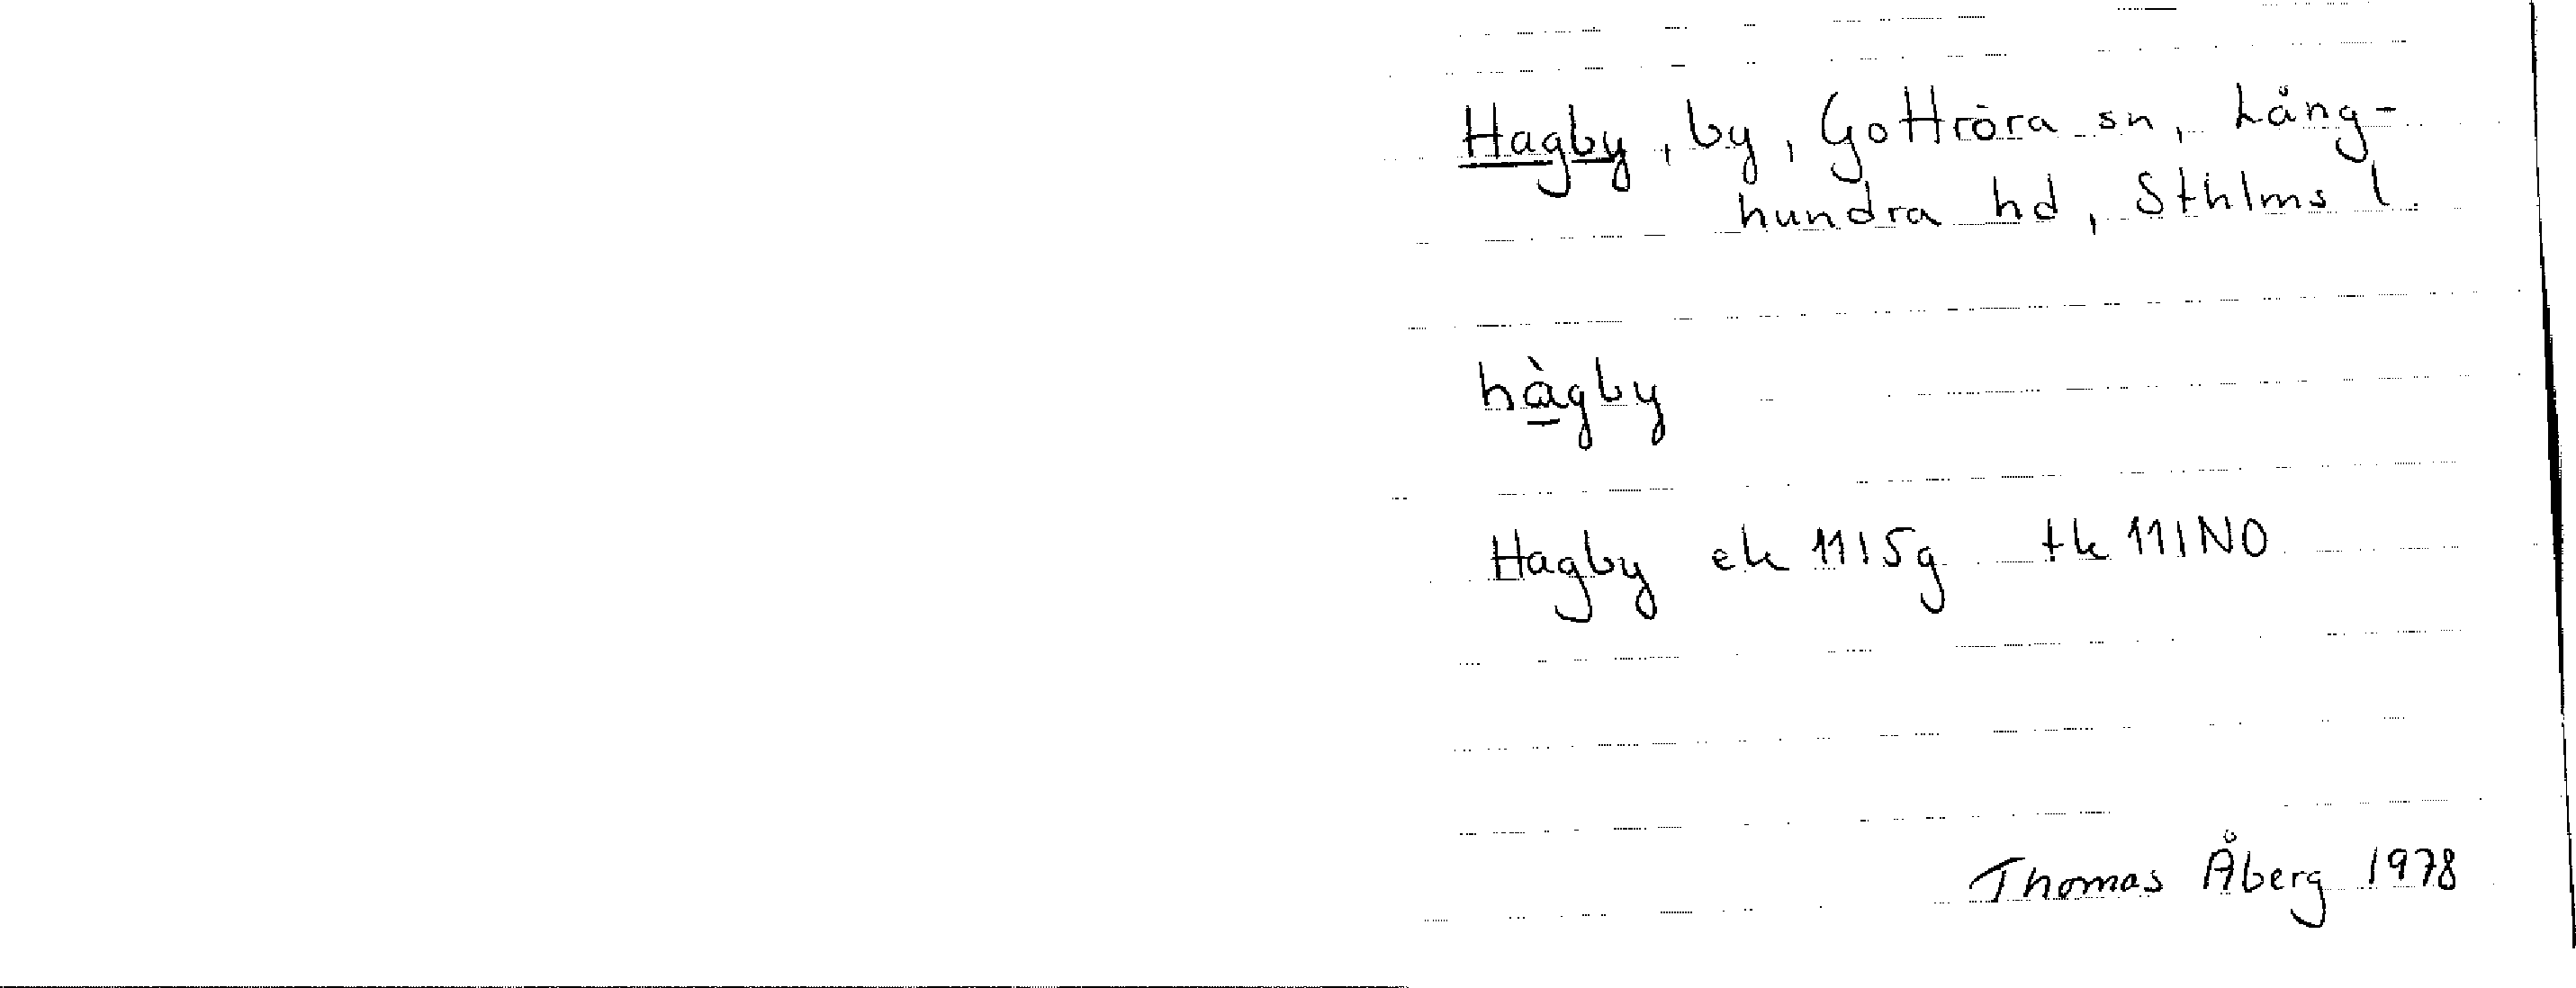 Hagby, by, Gottröra sn, Lång-
hundra hd, Sthlms l.
hàgby
Hagby ek 11I5g tk 11INO
Thomas Åberg 1978